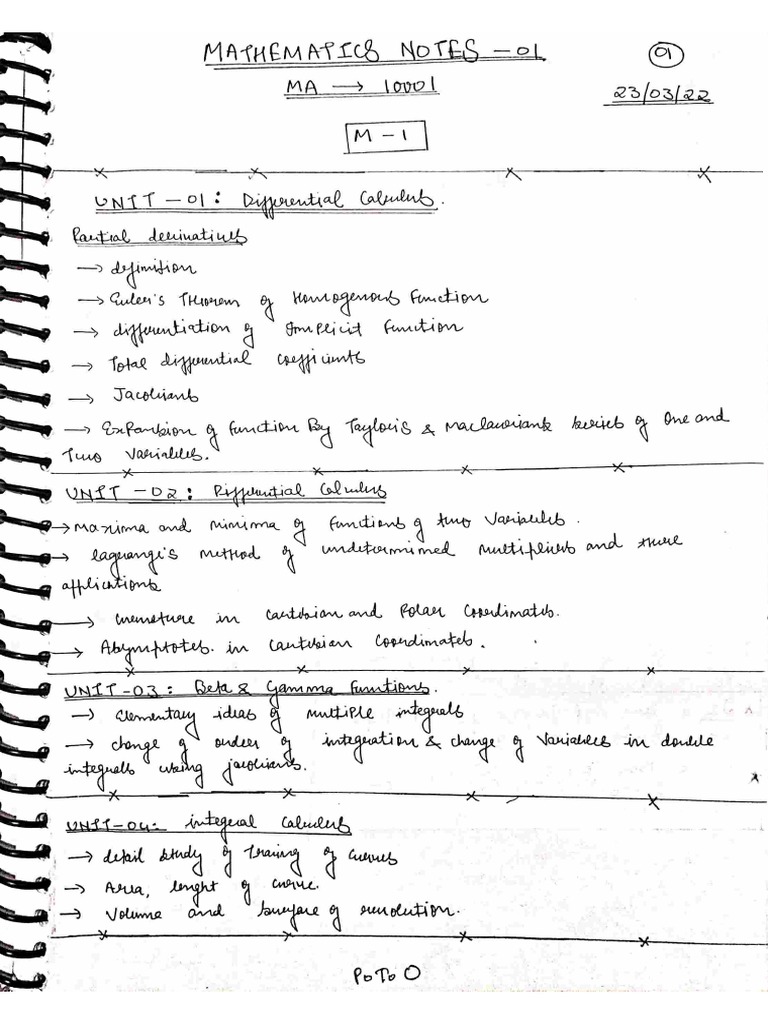 MATHEMATICS NOTES - 01
01
MA → 10001
23/03/22
M - 1
UNIT - 01: Differential Calculus.
Partial derivatives
→ definition
→ Euler's Theorem of Homogenous Function
→ differentiation of Implicit Function
→ Total differential coefficients
→ Jacobians
→ Expansion of function By Taylor's & Maclaurians series of One and
Two Variables.
UNIT - 02: Differential Calculus
→ Maxima and minima of functions of two Variables.
→ lagrangi's method of undetermimed multipliers and there
applications
→ curvature in Cartesian and Polar Coordinates.
→ Asymptotes. in Cartesian Coordinates.
UNIT-03: Beta & Gamma Functions.
→ Elementary ideas of multiple integrals
→ change of order of integration & change of Variables in double
integrals using jacobians.
UNIT-04: integral Calculus
→ detail study of Traing of Curves
→ Area, lenght of curve.
→ Volume and of revolution.
P.T.O